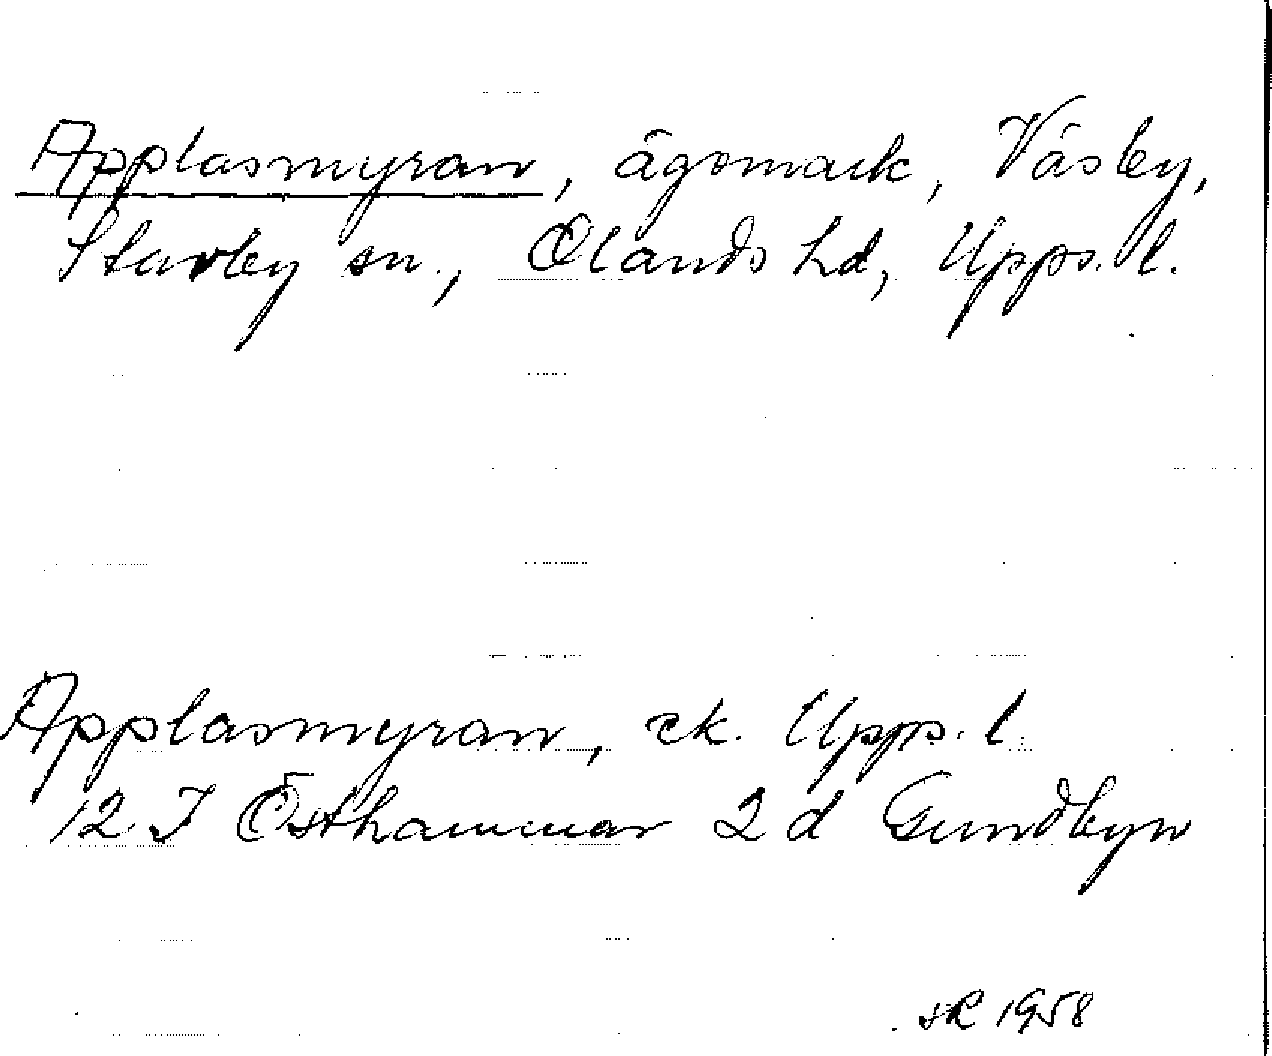 Applasmyran, ägomark, Väsby,
Stavby sn., Olands hd, Upps. l.
Applasmyran, ek. Upps. l.
12 I Östhammar 2 d Gundbyn
SR 1958